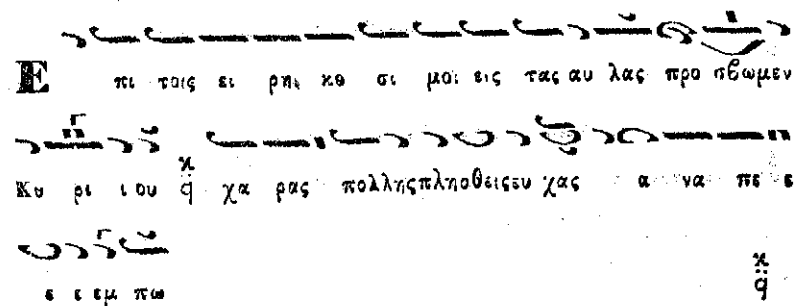 Ε πι τοις ει ρη κο σι μοι εις τας αυ λας προ σβωμεν
Κυ ρι ι ου χα ρας πολλης πληθεις ευ χας α να πε ε
ε ε εμ πω